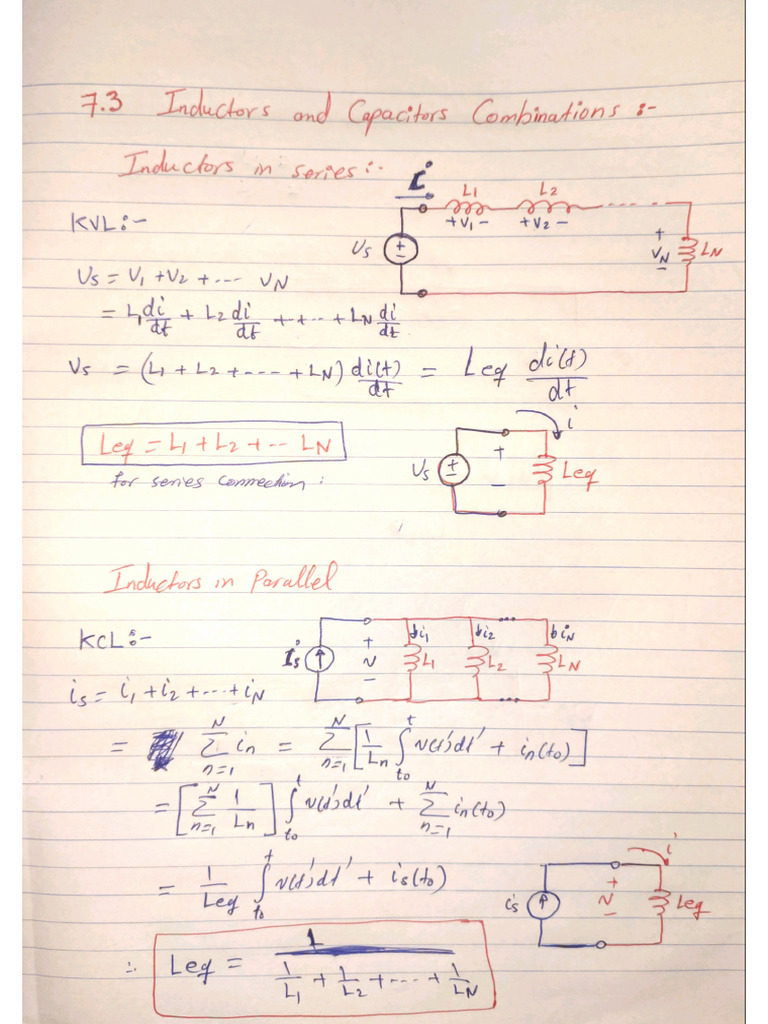 7.3 Inductors and Capacitors Combinations :-
Inductors in series :-
i
L1 L2
KVL :-
+ V1 - + V2 -
Vs + -
+ VN - LN
Vs = V1 + V2 + ---- VN
= L1 di/dt + L2 di/dt + + --- + LN di/dt
Vs = (L1 + L2 + ---- + LN) di(t)/dt = Leq di(t)/dt
i
Leq = L1 + L2 + --- LN
Vs + - + - Leq
for series connection :
Inductors in Parallel
KCL :-
Is + v - i1 L1 i2 L2 ... iN LN
is = i1 + i2 + --- + iN
= \sum_{n=1}^{N} in = \sum_{n=1}^{N} [ 1/Ln \int_{to}^{t} v(t')dt' + in(to) ]
= [ \sum_{n=1}^{N} 1/Ln ] \int_{to}^{t} v(t')dt' + \sum_{n=1}^{N} in(to)
= 1/Leq \int_{to}^{t} v(t')dt' + is(to)
i
is + v - Leq
∴ Leq = 1 / (1/L1 + 1/L2 + --- + 1/LN)